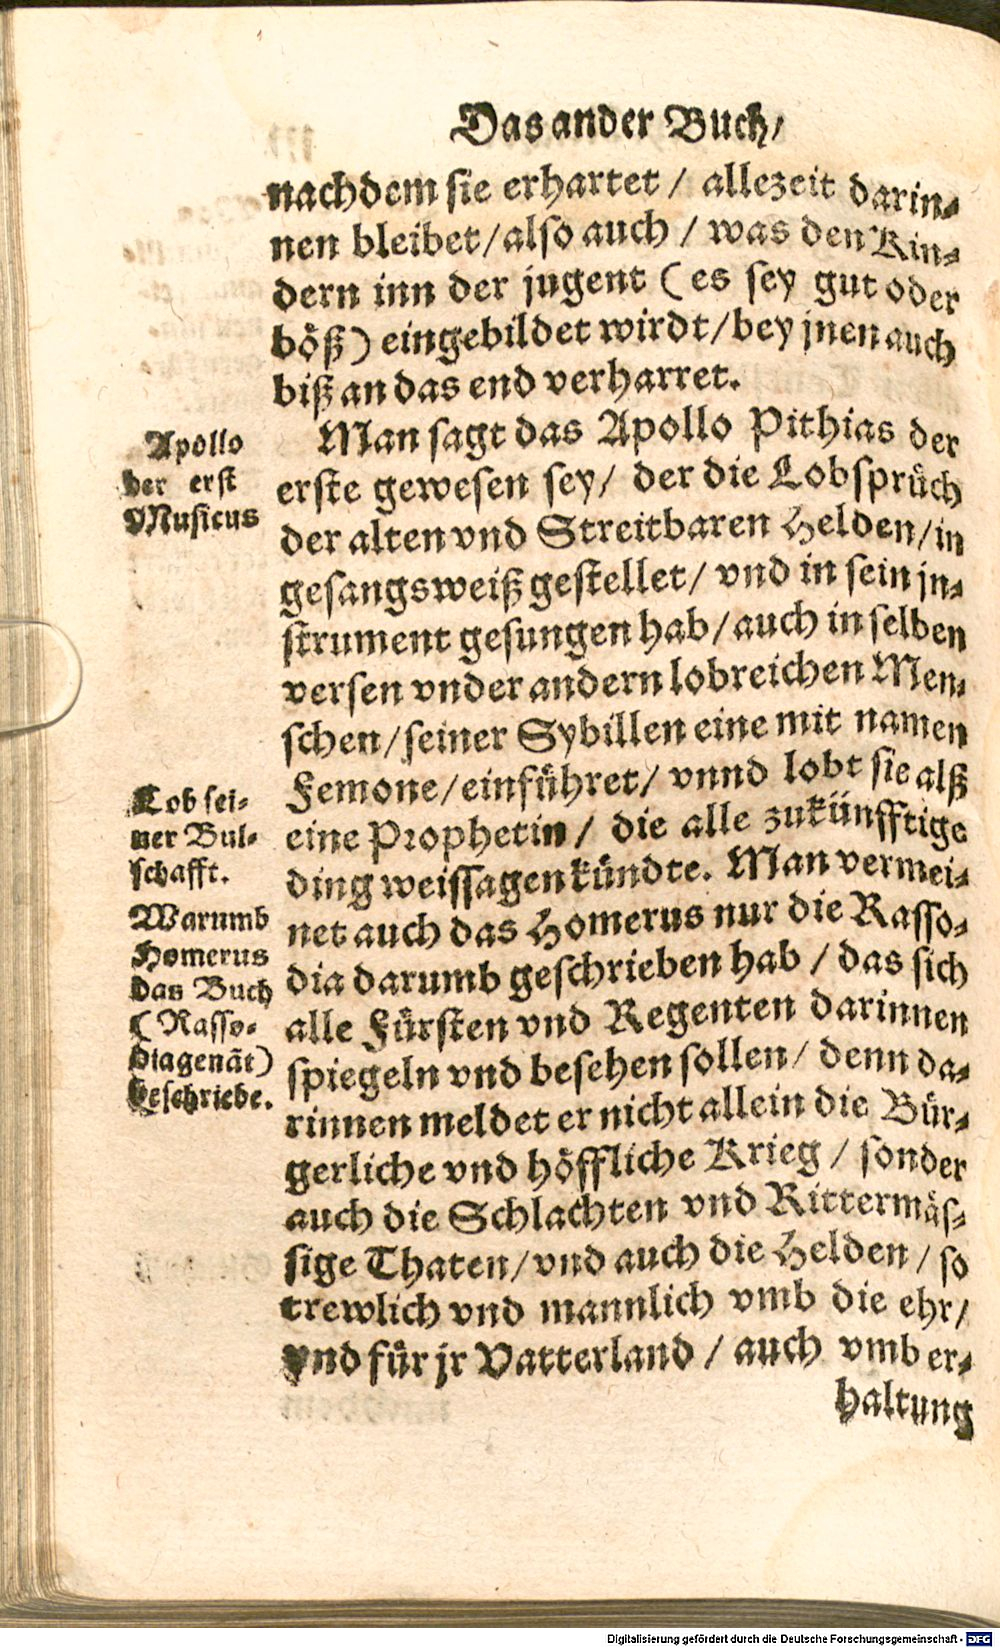 Das ander Buch/
nachdem sie erhartet / allezeit darin⸗
nen bleibet/also auch / was den Kin⸗
dern inn der jugent ( es sey gut oder
böß) eingebildet wirdt/bey jnen auch
biß an das end verharret.
Apollo
der erst
Musicus
Man sagt das Apollo Pithias der
erste gewesen sey/ der die Lobsprüch
der alten vnd Streitbaren Helden/in
gesangsweiß gestellet/ vnd in sein jn⸗
strument gesungen hab/auch in selben
versen vnder andern lobreichen Men⸗
schen/seiner Sybillen eine mit namen
Lob sei⸗
ner Bul⸗
schafft.
Femone/einführet/ vnnd lobt sie alß
eine Prophetin/ die alle zukünfftige
ding weissagen kündte. Man vermei⸗
Warumb
Homerus
das Buch
( Rasso⸗
diagenāt)
beschriebe.
net auch das Homerus nur die Rasso⸗
dia darumb geschrieben hab / das sich
alle Fürsten vnd Regenten darinnen
spiegeln vnd besehen sollen/ denn da⸗
rinnen meldet er nicht allein die Bür⸗
gerliche vnd höffliche Krieg / sonder
auch die Schlachten vnd Rittermäs⸗
sige Thaten/vnd auch die Helden / so
trewlich vnd mannlich vmb die ehr/
vnd für jr Vatterland / auch vmb er⸗
haltung
Digitalisierung gefördert durch die Deutsche Forschungsgemeinschaft - DFG